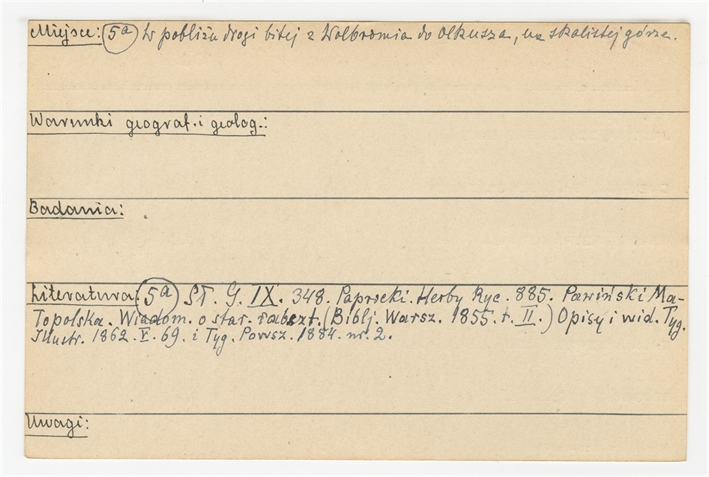 Miejsce: 5a W pobliżu drogi bitej z Wolbromia do Olkusza, na skalistej górze.
Warunki geograf. i geolog.:
Badania:
Literatura: 5a SŁ. G. IX. 348. Paprocki. Herby Ryc. 885. Pawiński Ma-
łopolska. Wiadom. o star. (Biblj. Warsz. 1855. t. II.) Opisy i wid. Tyg.
Illustr. 1862. V. 69. i Tyg. Powsz. 1884. nr. 2.
Uwagi: